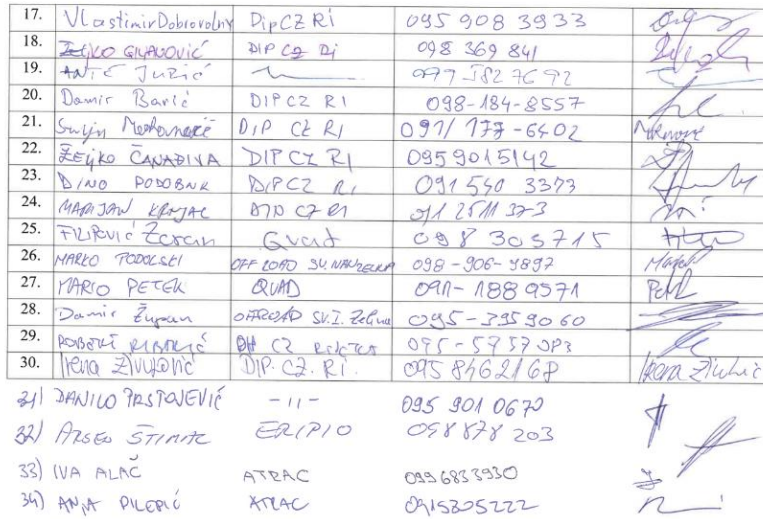 17. Vlastimir Dobrovolny DipCZ Ri 095 908 3933
18. Željko DIP CZ Ri 098 369 841
19. ANTE JURIĆ
20. Damir Barić DIPCZ RI 098-184-8557
21. DIP CZ RI 091/ 177-6402
22. ŽELJKO ČANADIJA DIPCZ RI 0959015142
23. DINO PODOBNIK DIPCZ RI 091 540 3373
24. MARIJAN KRNJAC DIP CZ RI 091 2511 373
25. FILIPOVIĆ Zoran Quad 098 303715
26. MARKO PODOLSKI OFF ROAD SV. 098-906-9897
27. MARIO PETEK QUAD 091-1889971 Petek
28. Damir Župan OFFROAD SV.I. Zelina 095-3959060
29. ROBERT CZ
30. Irena Živković DIP. CZ. RI. 095 8462168
31) DANILO PRSTOJEVIĆ -11- 095 901 0670
32) ARSEN ŠTIMAC ERIPIO 098 878 203
33) IVA ALAČ ATRAC 0996833930
34) ANJA ATRAC 0915305222